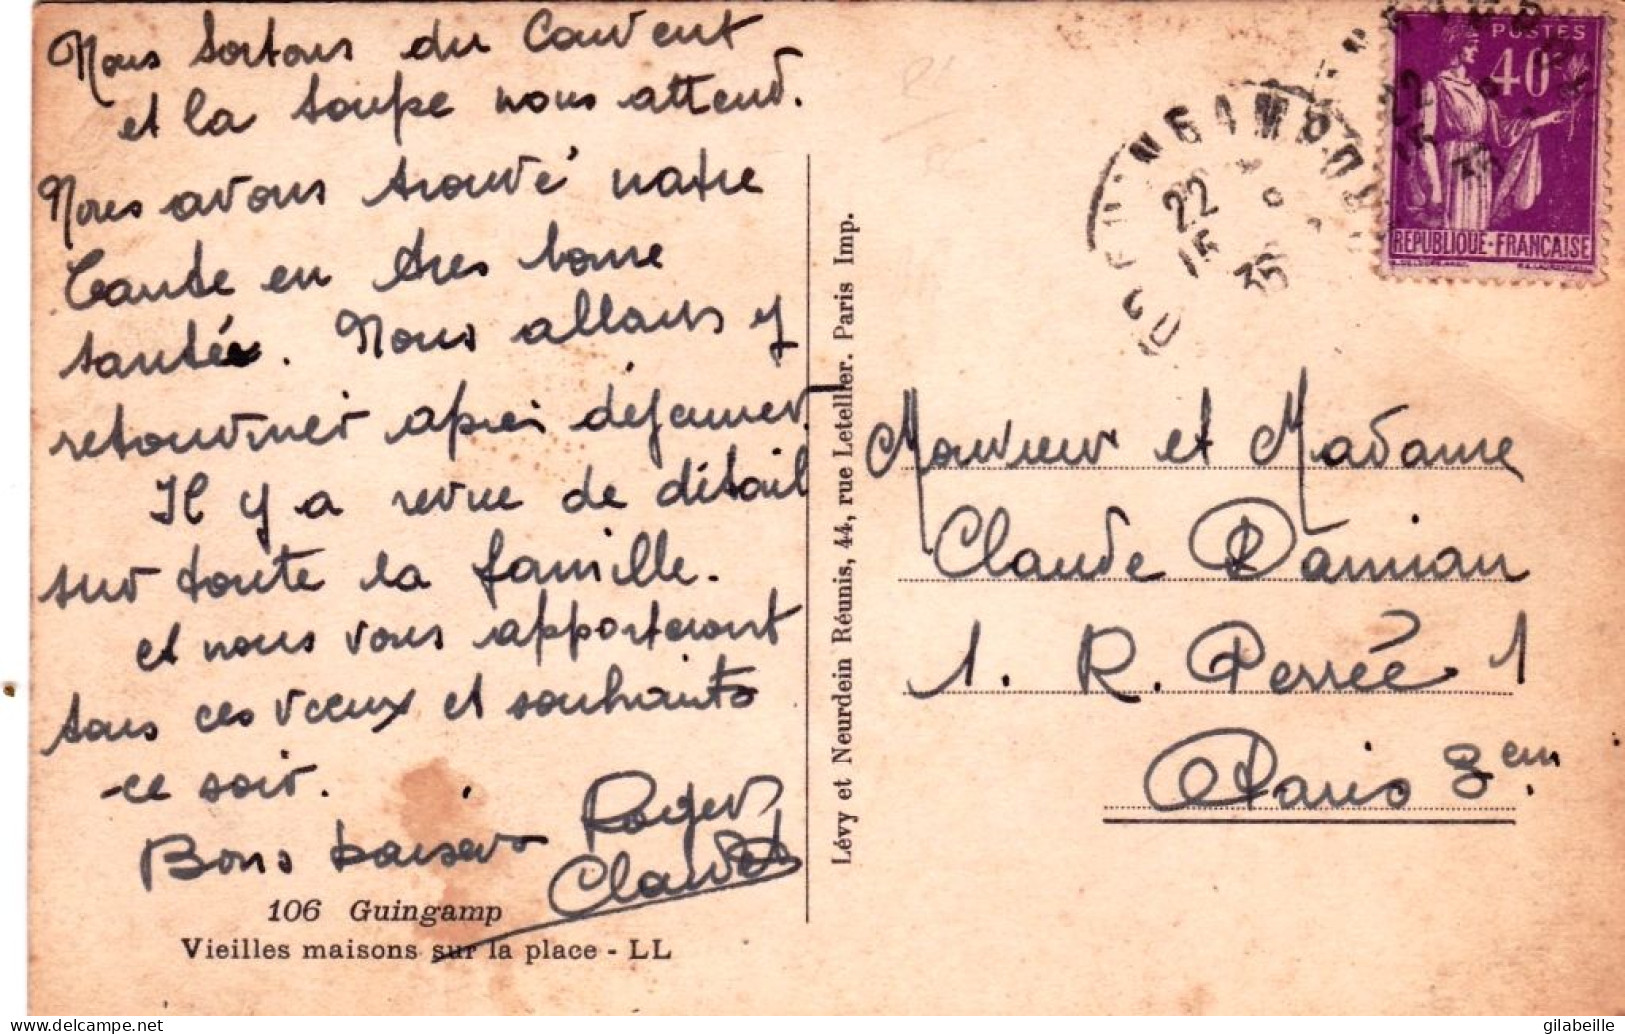 Nous sortons du Couvent
et la soupe nous attend.
Nous avons trouvé notre
tante en très bonne
santée. Nous allons y
retourner après déjeuner.
Il y a revue de détail
sur toute la famille.
et nous vous apporteront
tous ces vœux et souhaits
ce soir.
Bons baisers Roger
Claude
106 Guingamp
Vieilles maisons sur la place - LL
Lévy et Neurdein Réunis, 44, rue Letellier. Paris Imp.
GUINGAMP
22
15 35
POSTES
40c
REPUBLIQUE-FRANÇAISE
Monsieur et Madame
Claude Damian
1. R. Perrée 1
Paris 3em.
delcampe.net
gilabeille